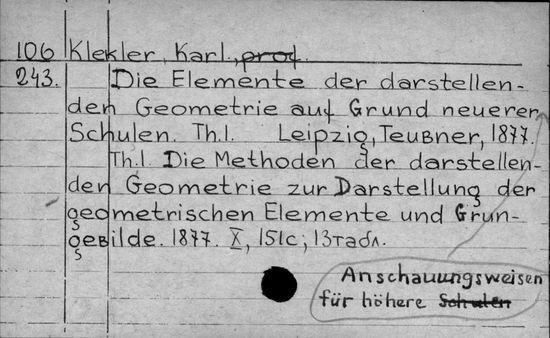 106 Klekler, Karl., prof.
243. Die Elemente der darstellen-
den Geometrie auf Grund neuerer
Schulen. Th.I. Leipzig, Teußner, 1877.
Th.I. Die Methoden der darstellen-
den Geometrie zur Darstellung der
geometrischen Elemente und Grun-
geвilde. 1877. X, 151c; 13табл.
Anschauungsweisen
für höhere Schulen